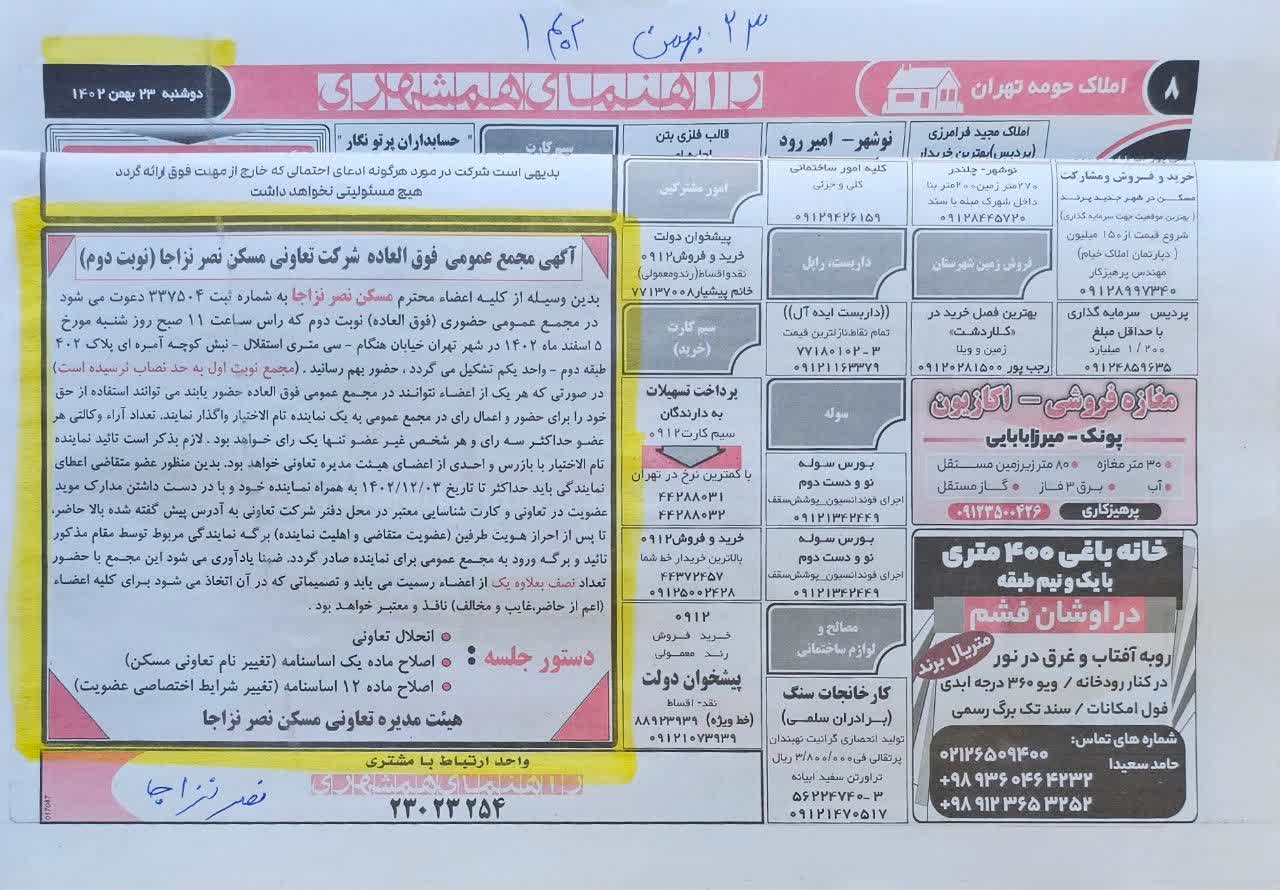 ۲۳ بهمن
۸
املاک حومه تهران
راهنمای همشهری
دوشنبه ۲۳ بهمن ۱۴۰۲
املاک مجید فرامرزی
(پردیس) بهترین خریدار
نوشهر - چلندر
۲۷۰متر زمین ۲۰۰متر بنا
داخل شهرک مبله با سند
۰۹۱۲۸۴۴۵۷۲۰
خرید و فروش و مشارکت
مسکن در شهر جدید پرند
(بهترین موقعیت جهت سرمایه گذاری)
شروع قیمت از ۱۵۰ میلیون
(دپارتمان املاک خیام)
مهندس پرهیزکار
۰۹۱۲۸۹۹۷۳۴۰
پردیس سرمایه گذاری
با حداقل مبلغ
۱/۲۰۰ میلیارد
۰۹۱۲۴۸۵۹۶۳۵
فروش زمین شهرستان
بهترین فصل خرید در
«کلاردشت»
زمین و ویلا
رجب پور ۰۹۱۲۰۲۸۱۵۰۰
مغازه فروشی - اکازیون
پونک - میرزابابایی
۳۰ متر مغازه ۸۰ متر زیرزمین مستقل
آب برق ۳ فاز گاز مستقل
پرهیزکاری ۰۹۱۲۳۵۰۰۴۲۶
خانه باغی ۴۰۰ متری
با یک و نیم طبقه
در اوشان فشم
متریال برند
رو به آفتاب و غرق در نور
در کنار رودخانه / ویو ۳۶۰ درجه ابدی
فول امکانات / سند تک برگ رسمی
شماره های تماس:
حامد سعیدا
۰۲۱۲۶۵۰۹۴۰۰
+۹۸ ۹۳۶ ۰۴۶ ۴۲۳۲
+۹۸ ۹۱۲ ۳۶۵ ۳۲۵۲
نوشهر - امیر رود
کلیه امور ساختمانی
کلی و جزئی
۰۹۱۲۹۴۲۶۱۵۹
داربست، رابل
((داربست ایده آل))
تمام نقاط، نازلترین قیمت
۷۷۱۸۰۱۰۲-۳
۰۹۱۲۱۱۶۳۳۷۹
سوله
بورس سوله
نو و دست دوم
اجرای فونداسیون_پوشش سقف
۰۹۱۲۱۳۴۲۴۴۹
بورس سوله
نو و دست دوم
اجرای فونداسیون_پوشش سقف
۰۹۱۲۱۳۴۲۴۴۹
مصالح و
لوازم ساختمانی
کارخانجات سنگ
(برادران سلمی)
تولید انحصاری گرانیت نهبندان
پرتقالی فی ۳/۸۰۰/۰۰۰ ریال
تراورتن سفید ابیانه
۵۶۲۲۴۷۴۰-۳
۰۹۱۲۱۴۷۰۵۱۷
قالب فلزی بتن
امور مشترکین
پیشخوان دولت
خرید و فروش ۰۹۱۲
نقد و اقساط (رند و معمولی)
خانم پیشیار ۷۷۱۳۷۰۰۸
سیم کارت
(خرید)
پرداخت تسهیلات
به دارندگان
سیم کارت ۰۹۱۲
با کمترین نرخ در تهران
۴۴۲۸۸۰۳۱
۴۴۲۸۸۰۳۲
خرید و فروش ۰۹۱۲
بالاترین خریدار خط شما
۴۴۳۷۲۴۵۷
۰۹۱۲۵۰۰۲۴۲۸
۰۹۱۲
خرید فروش
رند معمولی
پیشخوان دولت
نقد - اقساط
(خط ویژه) ۸۸۹۲۳۹۳۹
۰۹۱۲۱۰۷۳۹۳۹
سیم کارت
"حسابداران پرتو نگار"
بدیهی است شرکت در مورد هرگونه ادعای احتمالی که خارج از مهلت فوق ارائه گردد
هیچ مسئولیتی نخواهد داشت
آگهی مجمع عمومی فوق العاده شرکت تعاونی مسکن نصر نزاجا (نوبت دوم)
بدین وسیله از کلیه اعضاء محترم مسکن نصر نزاجا به شماره ثبت ۳۳۷۵۰۴ دعوت می شود
در مجمع عمومی حضوری (فوق العاده) نوبت دوم که راس ساعت ۱۱ صبح روز شنبه مورخ
۵ اسفند ماه ۱۴۰۲ در شهر تهران خیابان هنگام - سی متری استقلال - نبش کوچه آمره ای پلاک ۴۰۲
طبقه دوم - واحد یکم تشکیل می گردد ، حضور بهم رسانید . (مجمع نوبت اول به حد نصاب نرسیده است)
در صورتی که هر یک از اعضاء نتوانند در مجمع عمومی فوق العاده حضور یابند می توانند استفاده از حق
خود را برای حضور و اعمال رای در مجمع عمومی به یک نماینده تام الاختیار واگذار نمایند. تعداد آراء وکالتی هر
عضو حداکثر سه رای و هر شخص غیر عضو تنها یک رای خواهد بود . لازم بذکر است تائید نماینده
تام الاختیار با بازرس و احدی از اعضای هیئت مدیره تعاونی خواهد بود. بدین منظور عضو متقاضی اعطای
نمایندگی باید حداکثر تا تاریخ ۱۴۰۲/۱۲/۰۳ به همراه نماینده خود و با در دست داشتن مدارک موید
عضویت در تعاونی و کارت شناسایی معتبر در محل دفتر شرکت تعاونی به آدرس پیش گفته شده بالا حاضر،
تا پس از احراز هویت طرفین (عضویت متقاضی و اهلیت نماینده) برگه نمایندگی مربوط توسط مقام مذکور
تائید و برگه ورود به مجمع عمومی برای نماینده صادر گردد. ضمنا یادآوری می شود این مجمع با حضور
تعداد نصف بعلاوه یک از اعضاء رسمیت می یابد و تصمیماتی که در آن اتخاذ می شود برای کلیه اعضاء
(اعم از حاضر،غایب و مخالف) نافذ و معتبر خواهد بود .
دستور جلسه :
انحلال تعاونی
اصلاح ماده یک اساسنامه (تغییر نام تعاونی مسکن)
اصلاح ماده ۱۲ اساسنامه (تغییر شرایط اختصاصی عضویت)
هیئت مدیره تعاونی مسکن نصر نزاجا
واحد ارتباط با مشتری
راهنمای همشهری
۲۳۰۲۳۲۵۴
نصر نزاجا